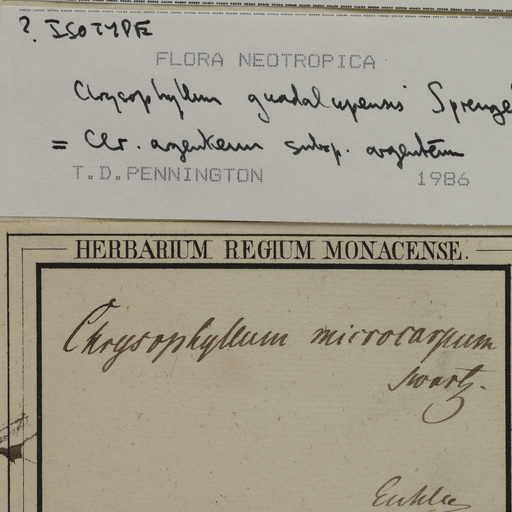 ? ISOTYPE
FLORA NEOTROPICA
Chrysophyllum guadalupensis Sprenge
= Chr. argenteum subsp. argenteum
T.D.PENNINGTON 1986
HERBARIUM REGIUM MONACENSE.
Chrysophyllum microcarpum
Swartz.